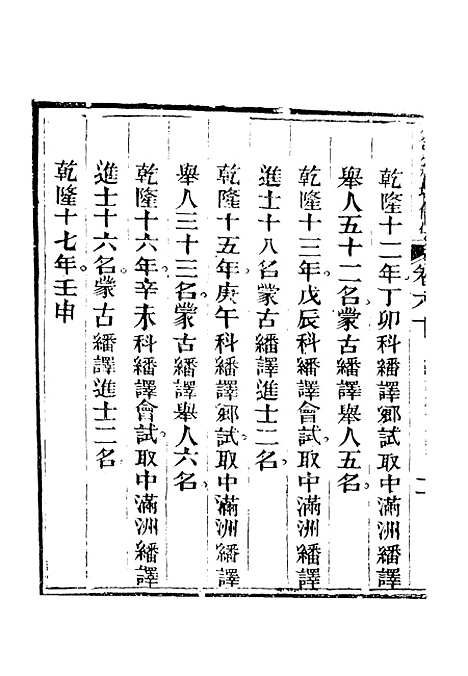 乾隆十二年丁卯科繙譯鄉試取中滿洲繙譯
舉人五十二名蒙古繙譯舉人五名
乾隆十三年戊辰科繙譯會試取中滿洲繙譯
進士十八名蒙古繙譯進士二名
乾隆十五年庚午科繙譯鄉試取中滿洲繙譯
舉人三十三名蒙古繙譯舉人六名
乾隆十六年辛未科繙譯會試取中滿洲繙譯
進士十六名蒙古繙譯進士二名
乾隆十七年壬申